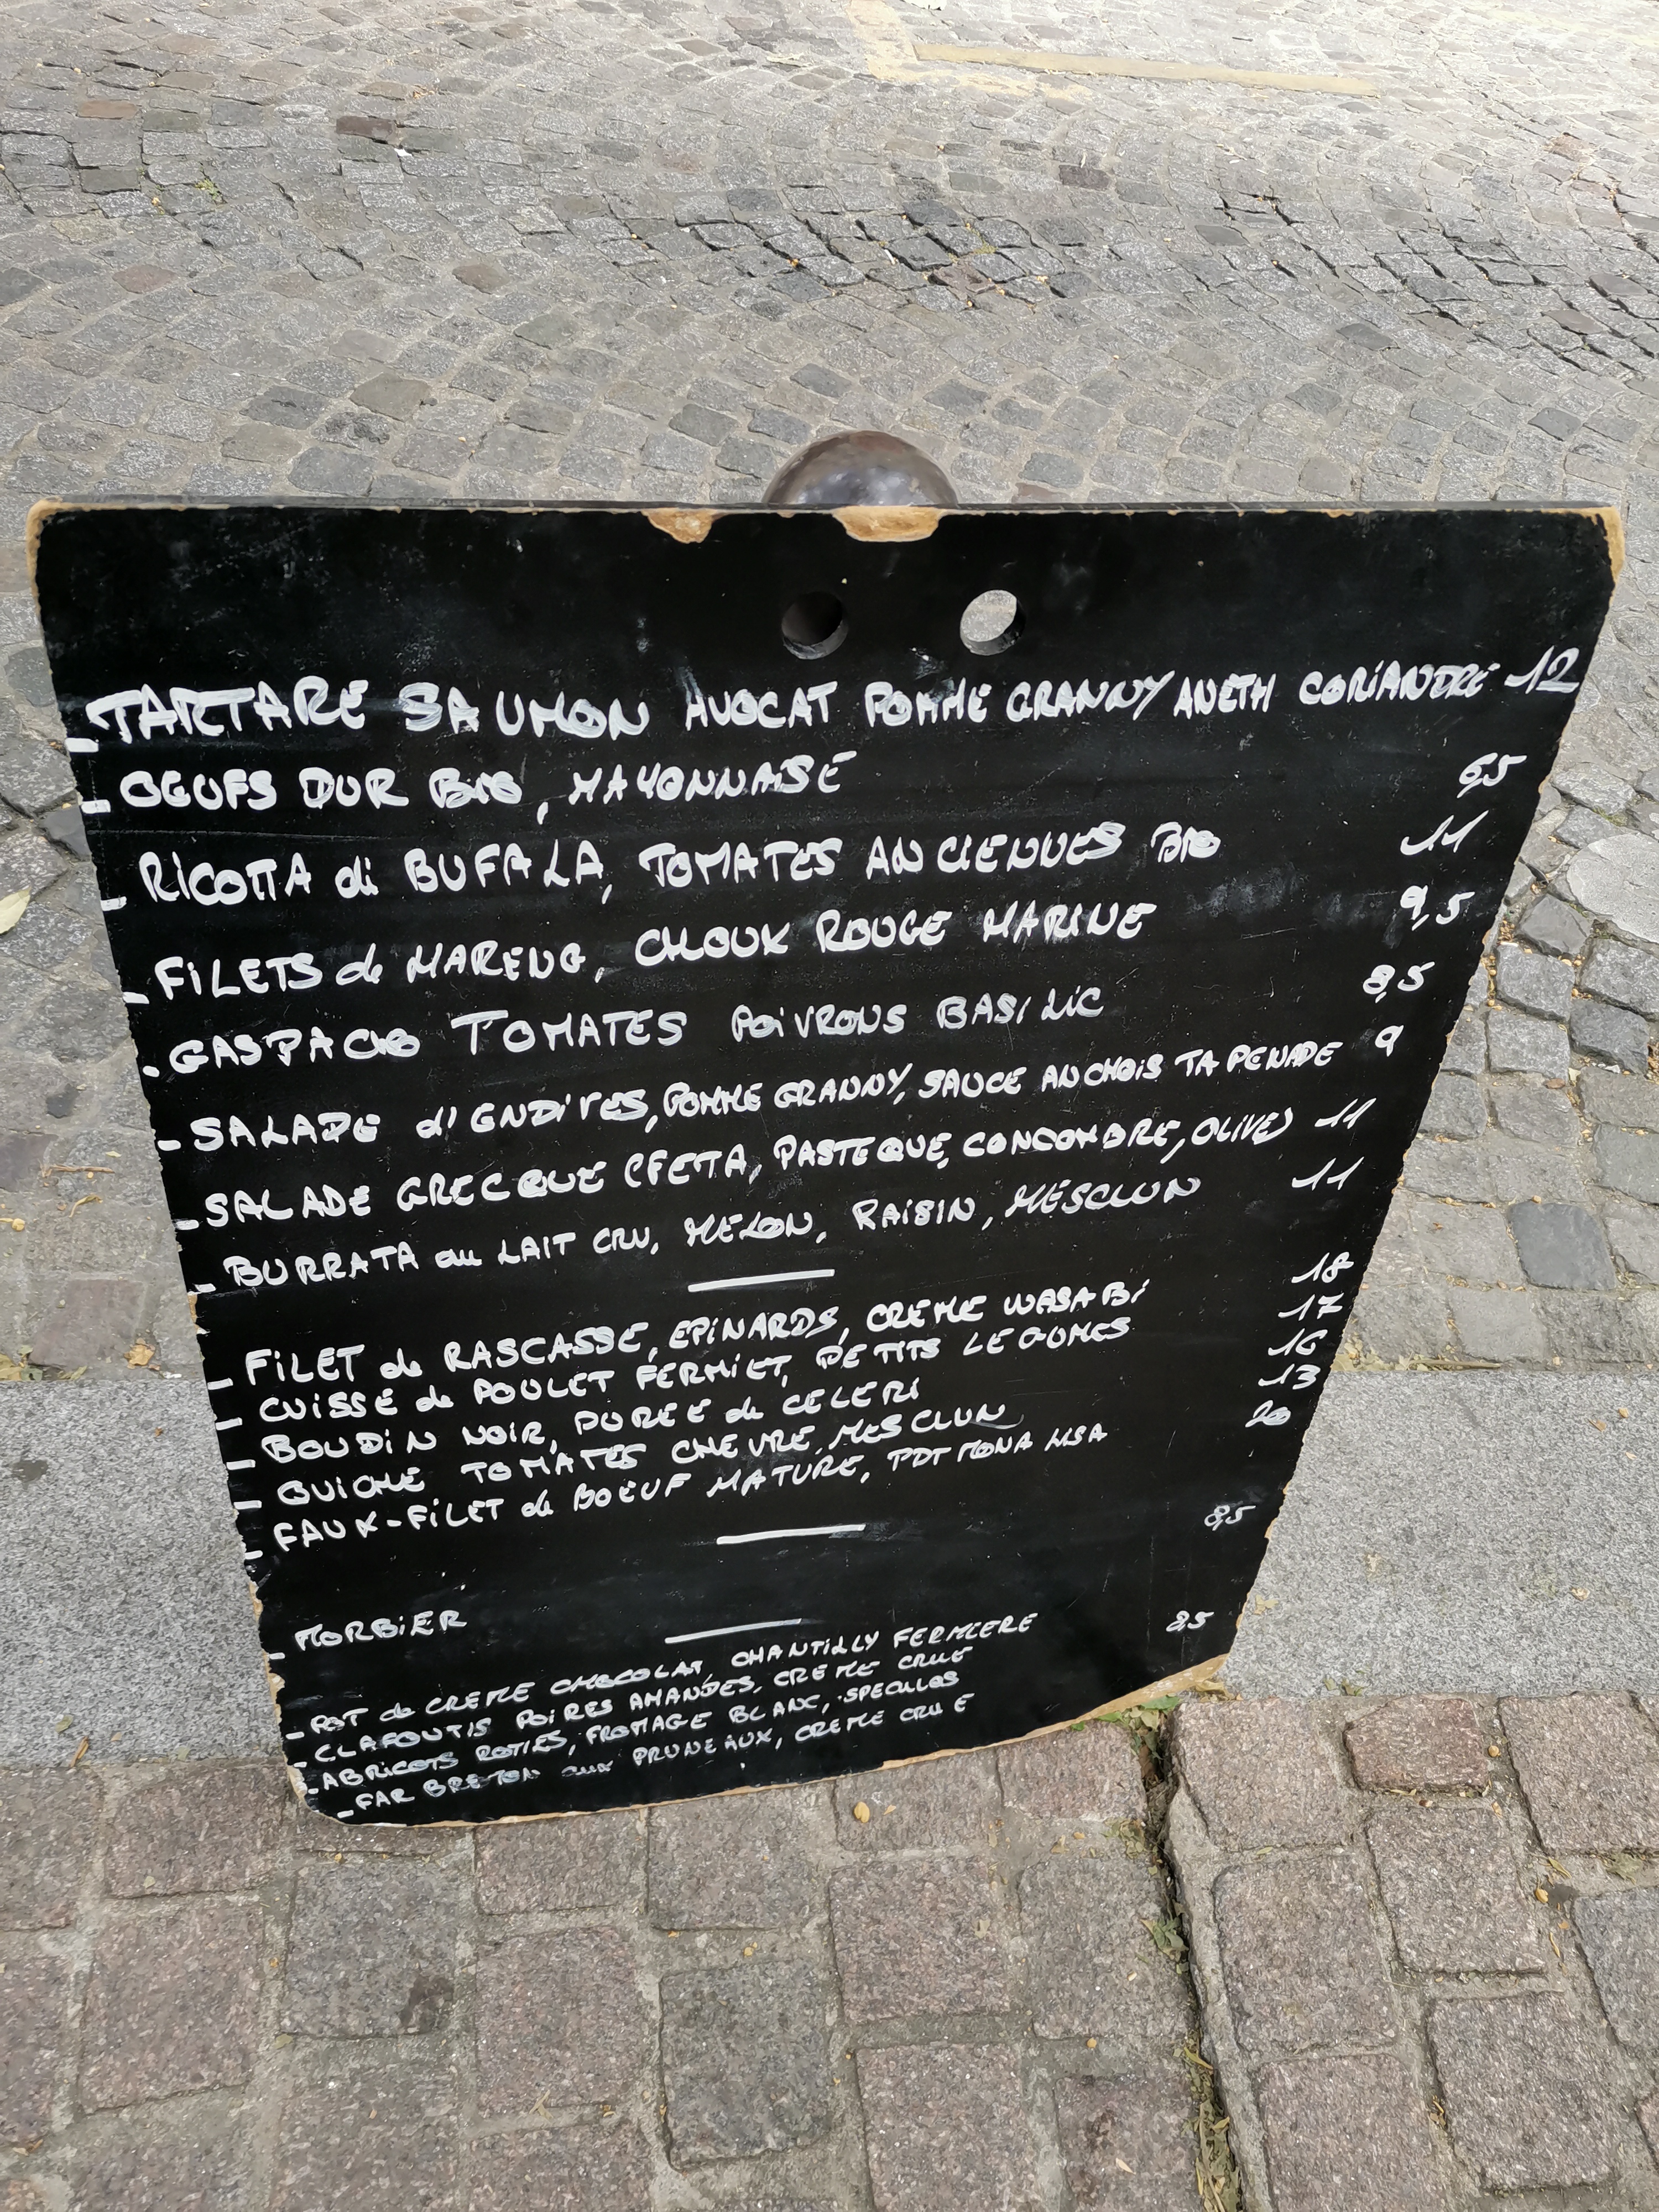 - TARTARE SAUMON AVOCAT POMME GRANNY ANETH CORIANDRE 12
- OEUFS DUR BIO, MAYONNAISE 6,5
- RICOTTA di BUFALA, TOMATES ANCIENNES BIO 11
- FILETS de HARENG, CHOUX ROUGE MARINE 9,5
- GASPACIO TOMATES POIVRONS BASILIC 8,5
- SALADE d'ENDIVES, POMME GRANNY, SAUCE ANCHOIS TAPENADE 9
- SALADE GRECQUE (FETA, PASTEQUE, CONCOMBRE, OLIVE) 11
- BURRATA au LAIT CRU, MELON, RAISIN, MESCLUN 11
- FILET de RASCASSE, EPINARDS, CREME WASABI 18
- CUISSE de POULET FERMIER, PETITS LEGUMES 17
- BOUDIN NOIR, PUREE de CELERI 16
- QUICHE TOMATES CHEVRE, MESCLUN 13
- FAUX-FILET de BOEUF MATURE, PDT MONA LISA 20
- MORBIER 8,5
- POT de CREME CHOCOLAT, CHANTILLY FERMIERE 8,5
- CLAFOUTIS POIRES AMANDES, CREME CRUE
- ABRICOTS ROTIES, FROMAGE BLANC, SPECULOS
- FAR BRETON aux PRUNEAUX, CREME CRUE